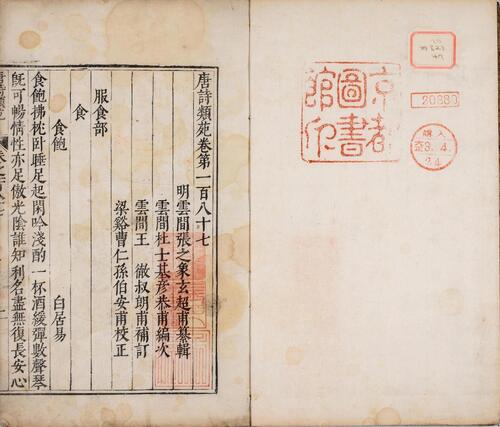 京都
圖書
館印
唐詩類苑卷第一百八十七
明雲間張之象玄超甫纂輯
雲間杜士基彥恭甫編次
雲間王　徹叔朗甫補訂
梁谿曹仁孫伯安甫校正
服食部
食
食飽　白居易
食飽拂枕卧睡足起閑吟淺酌一杯酒緩彈數聲琴
既可暢情性亦足傲光陰誰知利名盡無復長安心